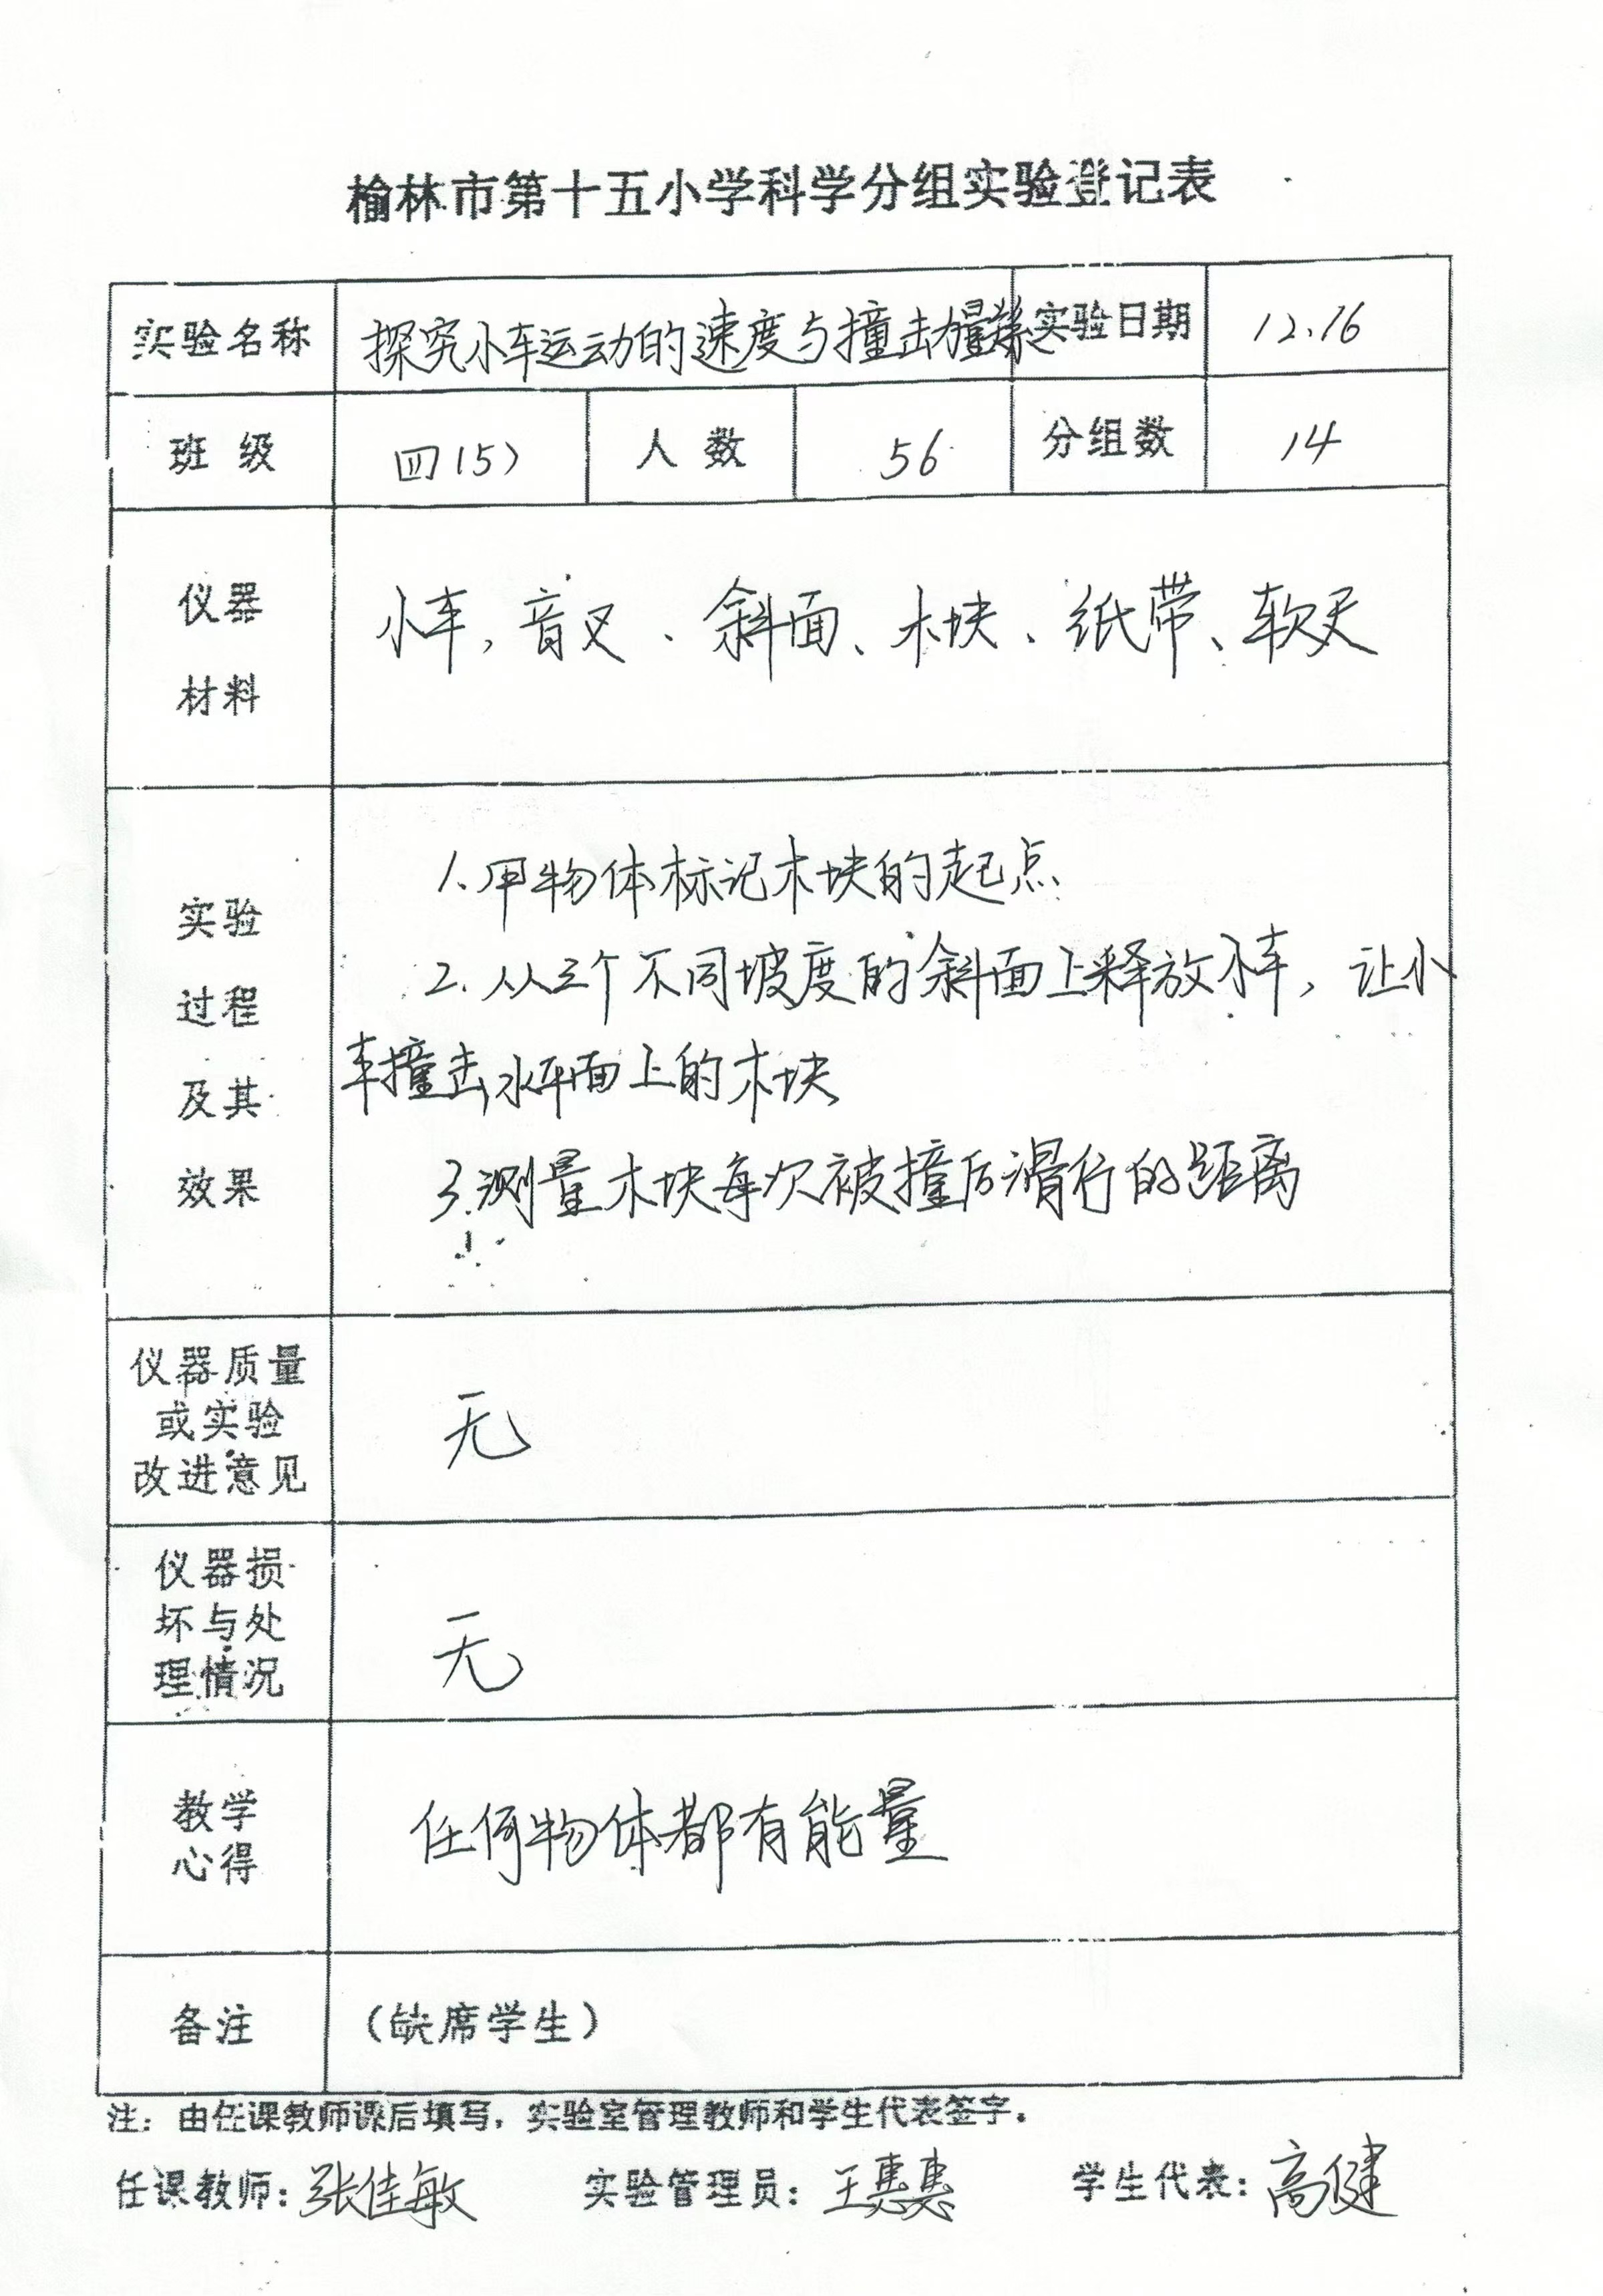 榆林市第十五小学科学分组实验登记表
实验名称 探究小车运动的速度与撞击力量 实验日期 12.16
班级 四(5) 人数 56 分组数 14
仪器
材料
小车,音叉、斜面、木块、纸带、软尺
实验
过程
及其
效果
1.用物体标记木块的起点
2.从三个不同坡度的斜面上释放小车,让小
车撞击水平面上的木块
3.测量木块每次被撞后滑行的距离
仪器质量
或实验
改进意见
无
仪器损
坏与处
理情况
无
教学
心得
任何物体都有能量
备注 (缺席学生)
注:由任课教师课后填写,实验室管理教师和学生代表签字.
任课教师:张佳敏 实验管理员:王惠惠 学生代表:高健